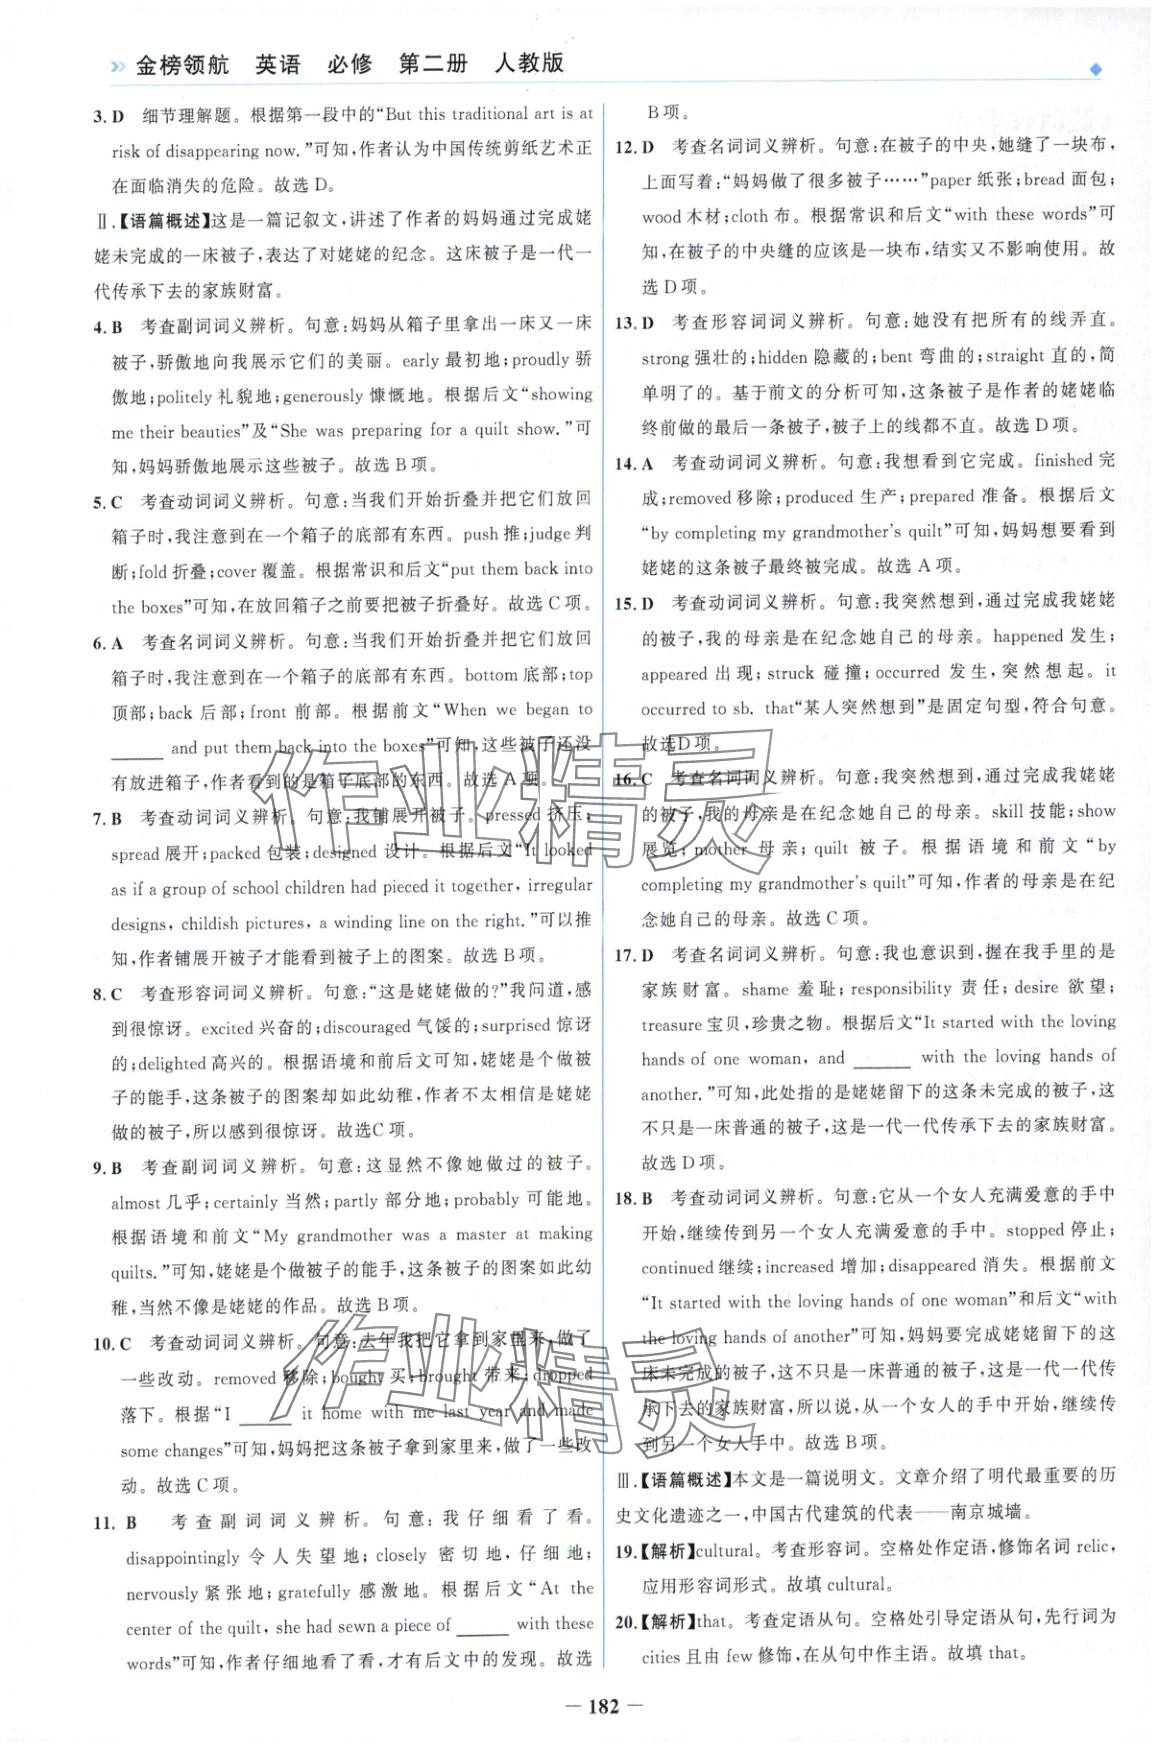 金榜领航 英语 必修 第二册 人教版
3. D 细节理解题。根据第一段中的“But this traditional art is at
risk of disappearing now.”可知,作者认为中国传统剪纸艺术正
在面临消失的危险。故选D。
Ⅱ.【语篇概述】这是一篇记叙文,讲述了作者的妈妈通过完成姥
姥未完成的一床被子,表达了对姥姥的纪念。这床被子是一代一
代传承下去的家族财富。
4. B 考查副词词义辨析。句意:妈妈从箱子里拿出一床又一床
被子,骄傲地向我展示它们的美丽。early 最初地;proudly 骄
傲地;politely 礼貌地;generously 慷慨地。根据后文“showing
me their beauties”及“She was preparing for a quilt show.”可
知,妈妈骄傲地展示这些被子。故选B项。
5. C 考查动词词义辨析。句意:当我们开始折叠并把它们放回
箱子时,我注意到在一个箱子的底部有东西。push 推;judge 判
断;fold 折叠;cover 覆盖。根据常识和后文“put them back into
the boxes”可知,在放回箱子之前要把被子折叠好。故选C项。
6. A 考查名词词义辨析。句意:当我们开始折叠并把它们放回
箱子时,我注意到在一个箱子的底部有东西。bottom 底部;top
顶部;back 后部;front 前部。根据前文“When we began to
______ and put them back into the boxes”可知,这些被子还没
有放进箱子,作者看到的是箱子底部的东西。故选A项。
7. B 考查动词词义辨析。句意:我铺展开被子。pressed 挤压;
spread 展开;packed 包装;designed 设计。根据后文“It looked
as if a group of school children had pieced it together, irregular
designs, childish pictures, a winding line on the right.”可以推
知,作者铺展开被子才能看到被子上的图案。故选B项。
8. C 考查形容词词义辨析。句意:“这是姥姥做的?”我问道,感
到很惊讶。excited 兴奋的;discouraged 气馁的;surprised 惊讶
的;delighted 高兴的。根据语境和前后文可知,姥姥是个做被
子的能手,这条被子的图案却如此幼稚,作者不太相信是姥姥
做的被子,所以感到很惊讶。故选C项。
9. B 考查副词词义辨析。句意:这显然不像她做过的被子。
almost 几乎;certainly 当然;partly 部分地;probably 可能地。
根据语境和前文“My grandmother was a master at making
quilts.”可知,姥姥是个做被子的能手,这条被子的图案如此幼
稚,当然不像是姥姥的作品。故选B项。
10. C 考查动词词义辨析。句意:去年我把它拿到家里来,做了
一些改动。removed 移除;bought 买;brought 带来;dropped
落下。根据“I ______ it home with me last year and made
some changes”可知,妈妈把这条被子拿到家里来,做了一些改
动。故选C项。
11. B 考查副词词义辨析。句意:我仔细看了看。
disappointingly 令人失望地;closely 密切地,仔细地;
nervously 紧张地;gratefully 感激地。根据后文“At the
center of the quilt, she had sewn a piece of ______ with these
words”可知,作者仔细地看了看,才有后文中的发现。故选
B项。
12. D 考查名词词义辨析。句意:在被子的中央,她缝了一块布,
上面写着:“妈妈做了很多被子……”paper 纸张;bread 面包;
wood 木材;cloth 布。根据常识和后文“with these words”可
知,在被子的中央缝的应该是一块布,结实又不影响使用。故
选D项。
13. D 考查形容词词义辨析。句意:她没有把所有的线弄直。
strong 强壮的;hidden 隐藏的;bent 弯曲的;straight 直的,简
单明了的。基于前文的分析可知,这条被子是作者的姥姥临
终前做的最后一条被子,被子上的线都不直。故选D项。
14. A 考查动词词义辨析。句意:我想看到它完成。finished 完
成;removed 移除;produced 生产;prepared 准备。根据后文
“by completing my grandmother's quilt”可知,妈妈想要看到
姥姥的这条被子最终被完成。故选A项。
15. D 考查动词词义辨析。句意:我突然想到,通过完成我姥姥
的被子,我的母亲是在纪念她自己的母亲。happened 发生;
appeared 出现;struck 碰撞;occurred 发生,突然想起。it
occurred to sb. that“某人突然想到”是固定句型,符合句意。
故选D项。
16. C 考查名词词义辨析。句意:我突然想到,通过完成我姥姥
的被子,我的母亲是在纪念她自己的母亲。skill 技能;show
展览;mother 母亲;quilt 被子。根据语境和前文“by
completing my grandmother's quilt”可知,作者的母亲是在纪
念她自己的母亲。故选C项。
17. D 考查名词词义辨析。句意:我也意识到,握在我手里的是
家族财富。shame 羞耻;responsibility 责任;desire 欲望;
treasure 宝贝,珍贵之物。根据后文“It started with the loving
hands of one woman, and ______ with the loving hands of
another.”可知,此处指的是姥姥留下的这条未完成的被子,这
不只是一床普通的被子,这是一代一代传承下去的家族财富。
故选D项。
18. B 考查动词词义辨析。句意:它从一个女人充满爱意的手中
开始,继续传到另一个女人充满爱意的手中。stopped 停止;
continued 继续;increased 增加;disappeared 消失。根据前文
“It started with the loving hands of one woman”和后文“with
the loving hands of another”可知,妈妈要完成姥姥留下的这
床未完成的被子,这不只是一床普通的被子,这是一代一代传
承下去的家族财富,所以说,从一个女人的手中开始,继续传
到另一个女人手中。故选B项。
Ⅲ.【语篇概述】本文是一篇说明文。文章介绍了明代最重要的历
史文化遗迹之一,中国古代建筑的代表——南京城墙。
19.【解析】cultural。考查形容词。空格处作定语,修饰名词 relic,
应用形容词形式。故填 cultural。
20.【解析】that。考查定语从句。空格处引导定语从句,先行词为
cities 且由 few 修饰,在从句中作主语。故填 that。
作业精灵
作业精灵
— 182 —